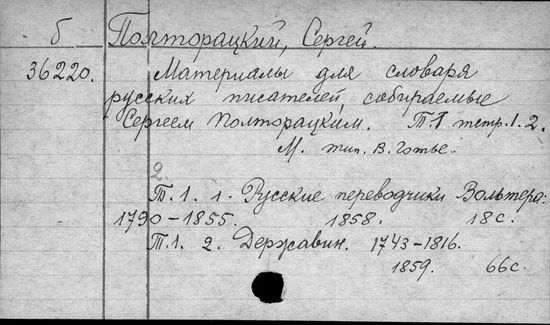 б Полторацкий, Сергей.
36220. Материалы для словаря
русских писателей, собираемые
Сергеем Полторацким. Т.1 тетр. 1. 2.
М. тип. В. Готье.
2.
Т. 1. 1. Русские переводчики Вольтера:
1790-1855. 1858. 18 с.
Т. 1. 2. Державин. 1743-1816.
1859. 66 с.